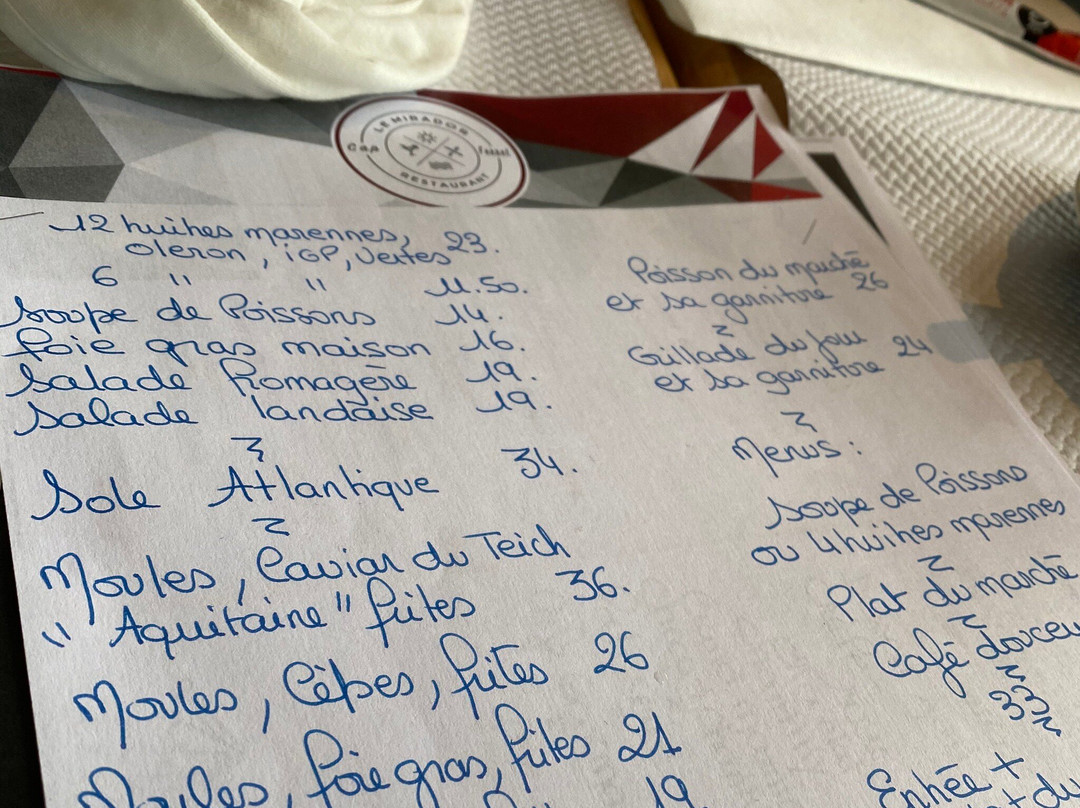 LE MIRADOR
Cap Ferret
RESTAURANT
12 huitres marennes, 23.
oleron, iGP, Vertes
6 " " 11.50.
Soupe de Poissons 14.
foie gras maison 16.
Salade fromagère 19.
Salade landaise 19.
Sole Atlantique 34.
Moules, Caviar du Teich
"Aquitaine" frites 36.
Moules, Cèpes, frites 26
Moules, foie gras, frites 21
19
Poisson du marché
et sa garniture 26
Grillade du jour 24
et sa garniture
Menus :
Soupe de Poissons
ou 4 huitres marennes
Plat du marché
Café douceu
33
Entrée +
du